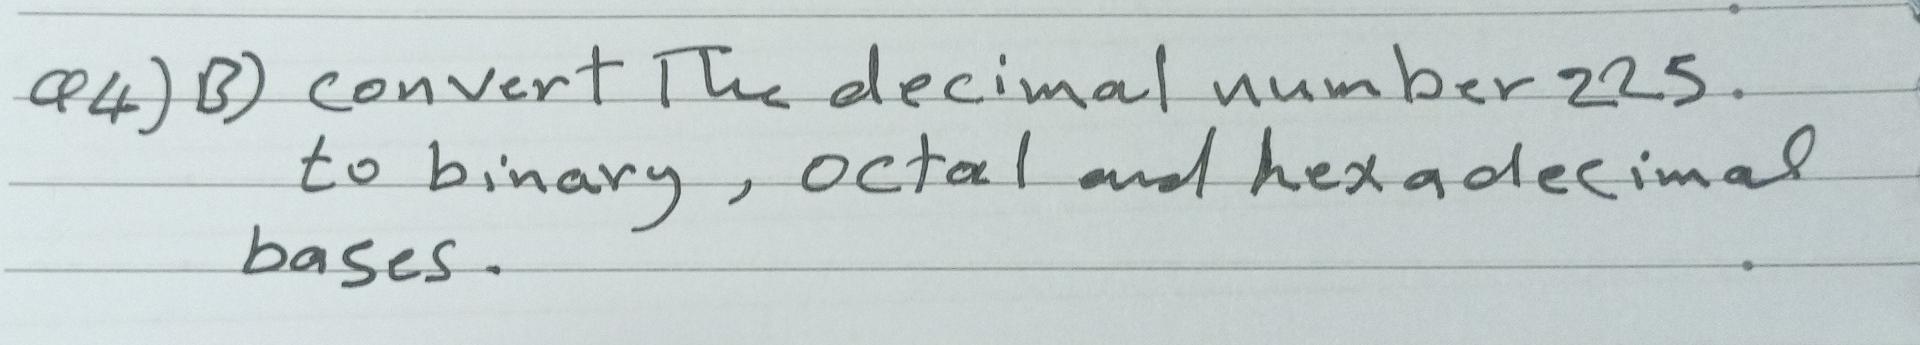 Q4) B) convert The decimal number 225.
to binary, octal and hexadecimal
bases.